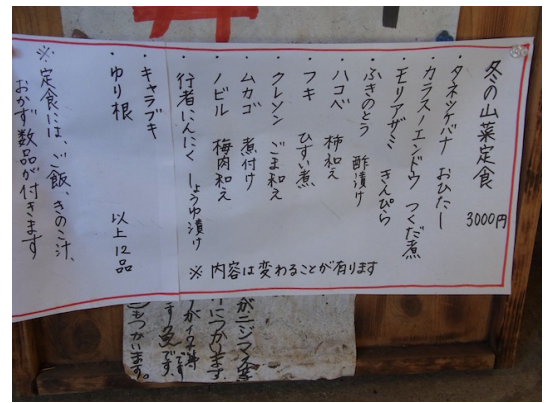 冬の山菜定食
3000円
・タネツケバナ おひたし
・カラスノエンドウ つくだ煮
・モリアザミ きんぴら
・ふきのとう 酢漬け
・ハコベ 柿和え
・フキ ひすい煮
・クレソン ごま和え
・ムカゴ 煮付け
・ノビル 梅肉和え
・行者にんにく しょうゆ漬け
・キャラブキ
・ゆり根
以上12品
※ 内容は変わることが有ります
※定食には、ご飯、きのこ汁、
おかず数品が付きます
がニジマス
につかります
もつかいます。